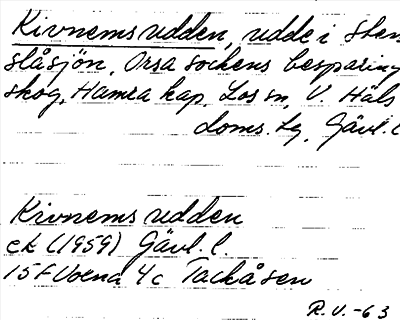 Kivnemsudden, udde i Sten
slåsjön, Orsa sockens besparing
skog, Hamra kap, Los sn, V. Häls
doms. tg, Gävl. l
Kivnemsudden
ek (1959) Gävl. l.
15F Voxna 4c Tackåsen
R. V. -63